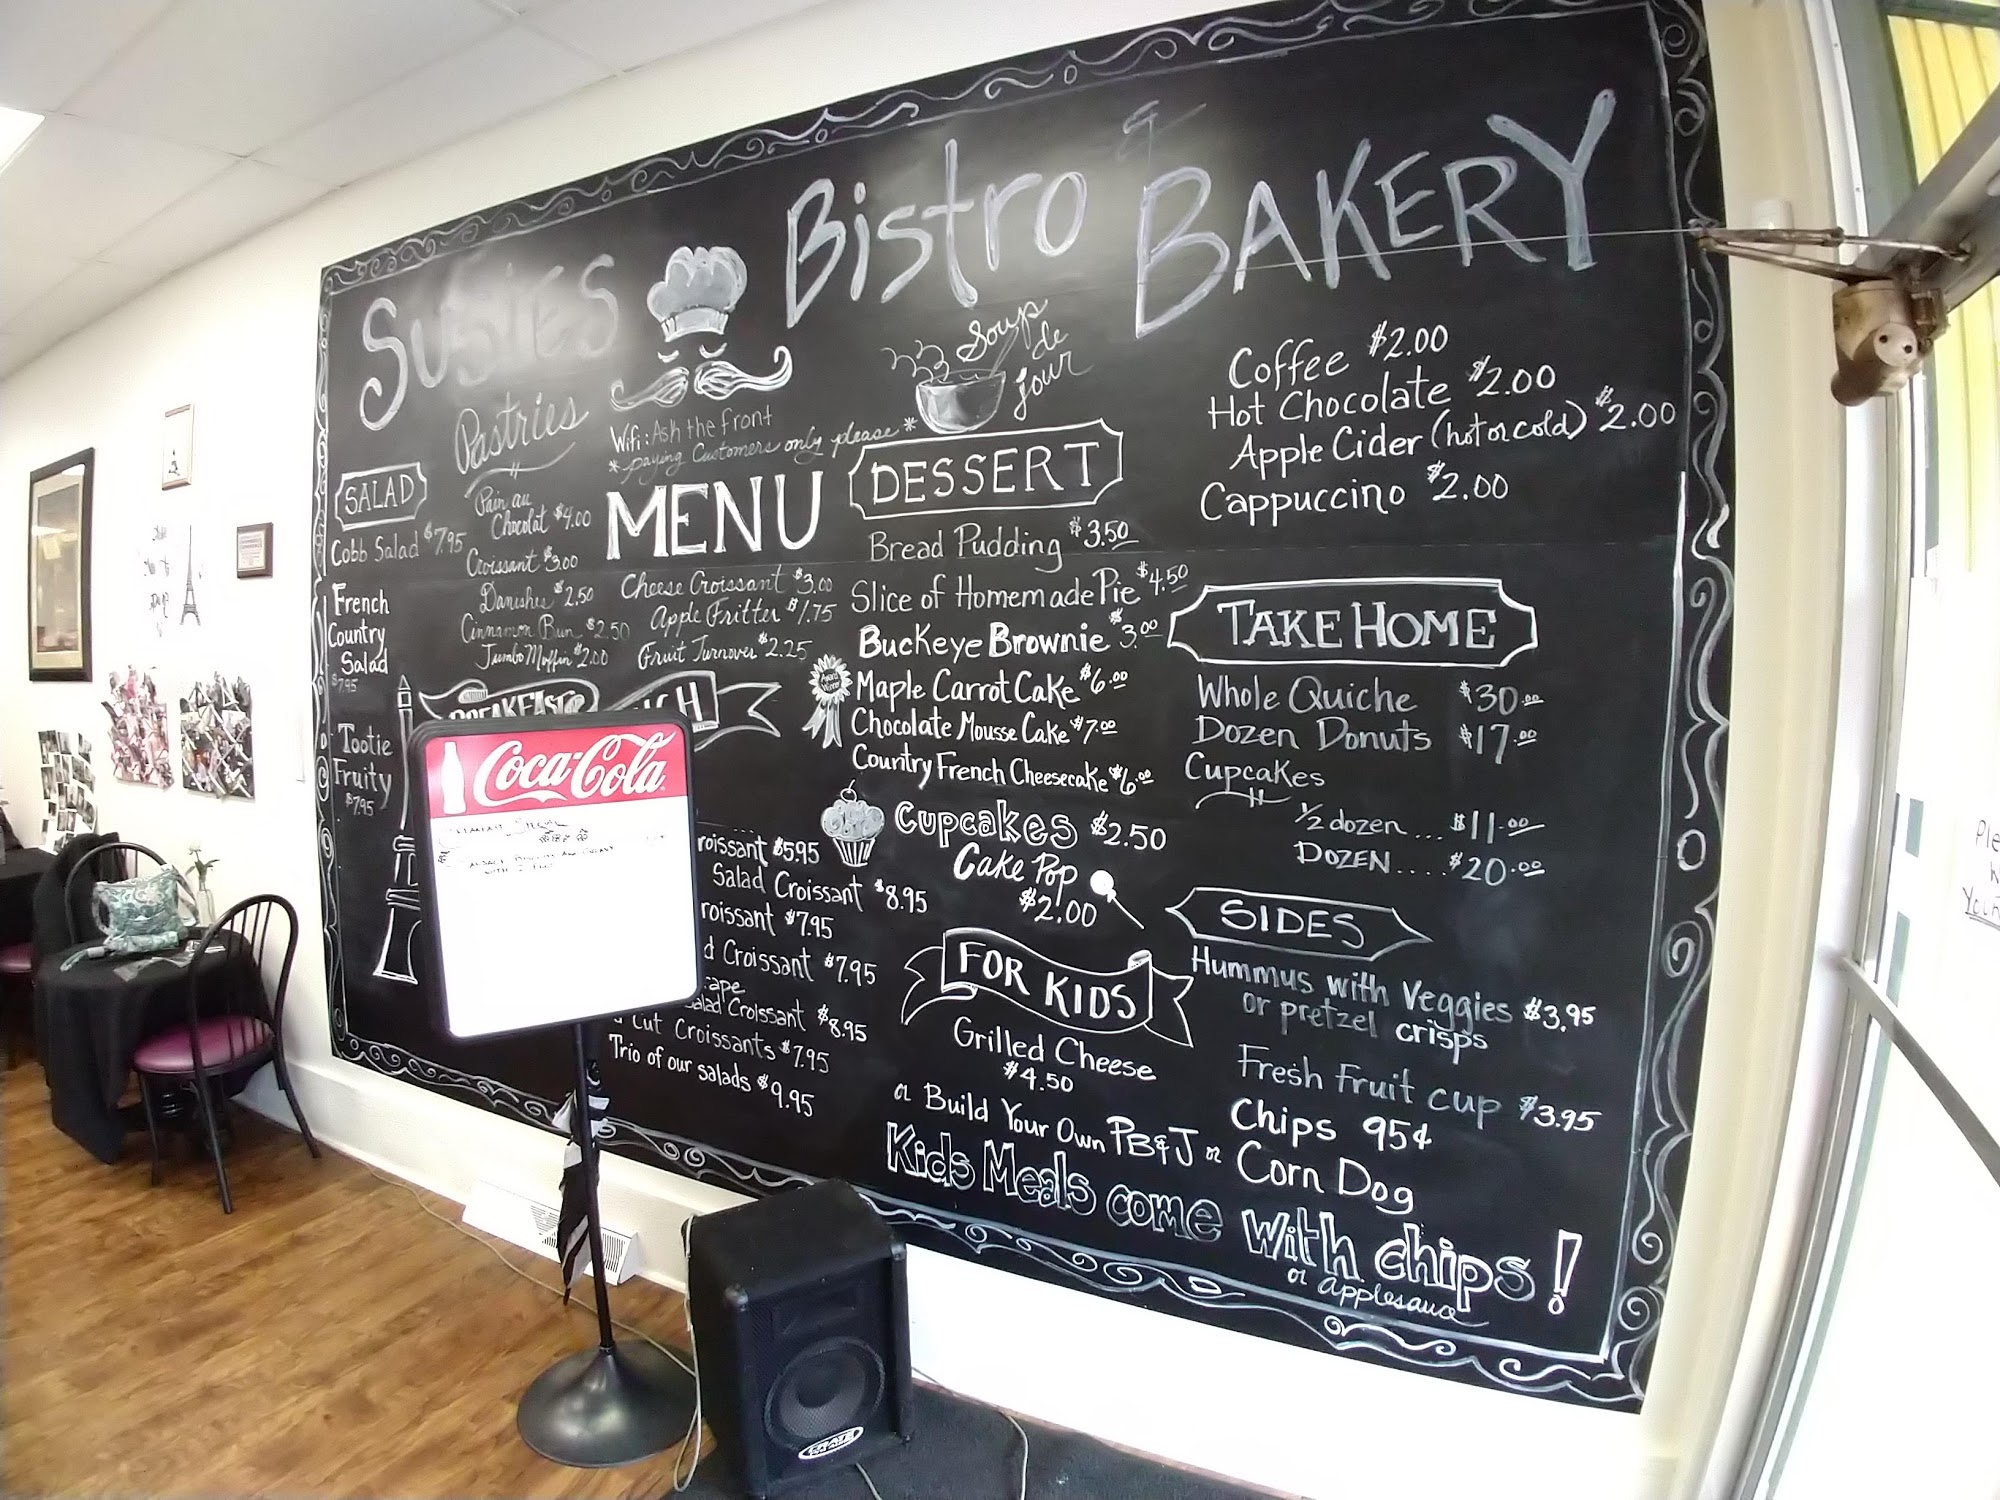 Susies Bistro & BAKERY
Soup
de
jour
Wifi: Ask the front
* paying Customers only please *
MENU
SALAD
Cobb Salad $7.95
French
Country
Salad
$7.95
Tootie
Fruity
$7.95
Pastries
Pain au
Chocolat $4.00
Croissant $3.00
Danishes $2.50
Cinnamon Bun $2.50
Jumbo Muffin $2.00
Cheese Croissant $3.00
Apple Fritter $1.75
Fruit Turnover $2.25
BREAKFAST &
Coca-Cola
roissant $5.95
Salad Croissant $8.95
roissant $7.95
d Croissant $7.95
ape
Salad Croissant $8.95
Cut Croissants $7.95
Trio of our salads $9.95
DESSERT
Bread Pudding $3.50
Slice of Homemade Pie $4.50
Buckeye Brownie $3.00
Award
Winner
Maple Carrot Cake $6.00
Chocolate Mousse Cake $7.00
Country French Cheesecake $6.00
Cupcakes $2.50
Cake Pop
$2.00
FOR KIDS
Grilled Cheese
$4.50
or Build Your Own PB&J or Corn Dog
Kids Meals come with chips!
or applesauce
Coffee $2.00
Hot Chocolate $2.00
Apple Cider (hot or cold) $2.00
Cappuccino $2.00
TAKE HOME
Whole Quiche $30.00
Dozen Donuts $17.00
Cupcakes
1/2 dozen.... $11.00
DOZEN..... $20.00
SIDES
Hummus with Veggies $3.95
or pretzel crisps
Fresh Fruit cup $3.95
Chips 95¢
CRATE